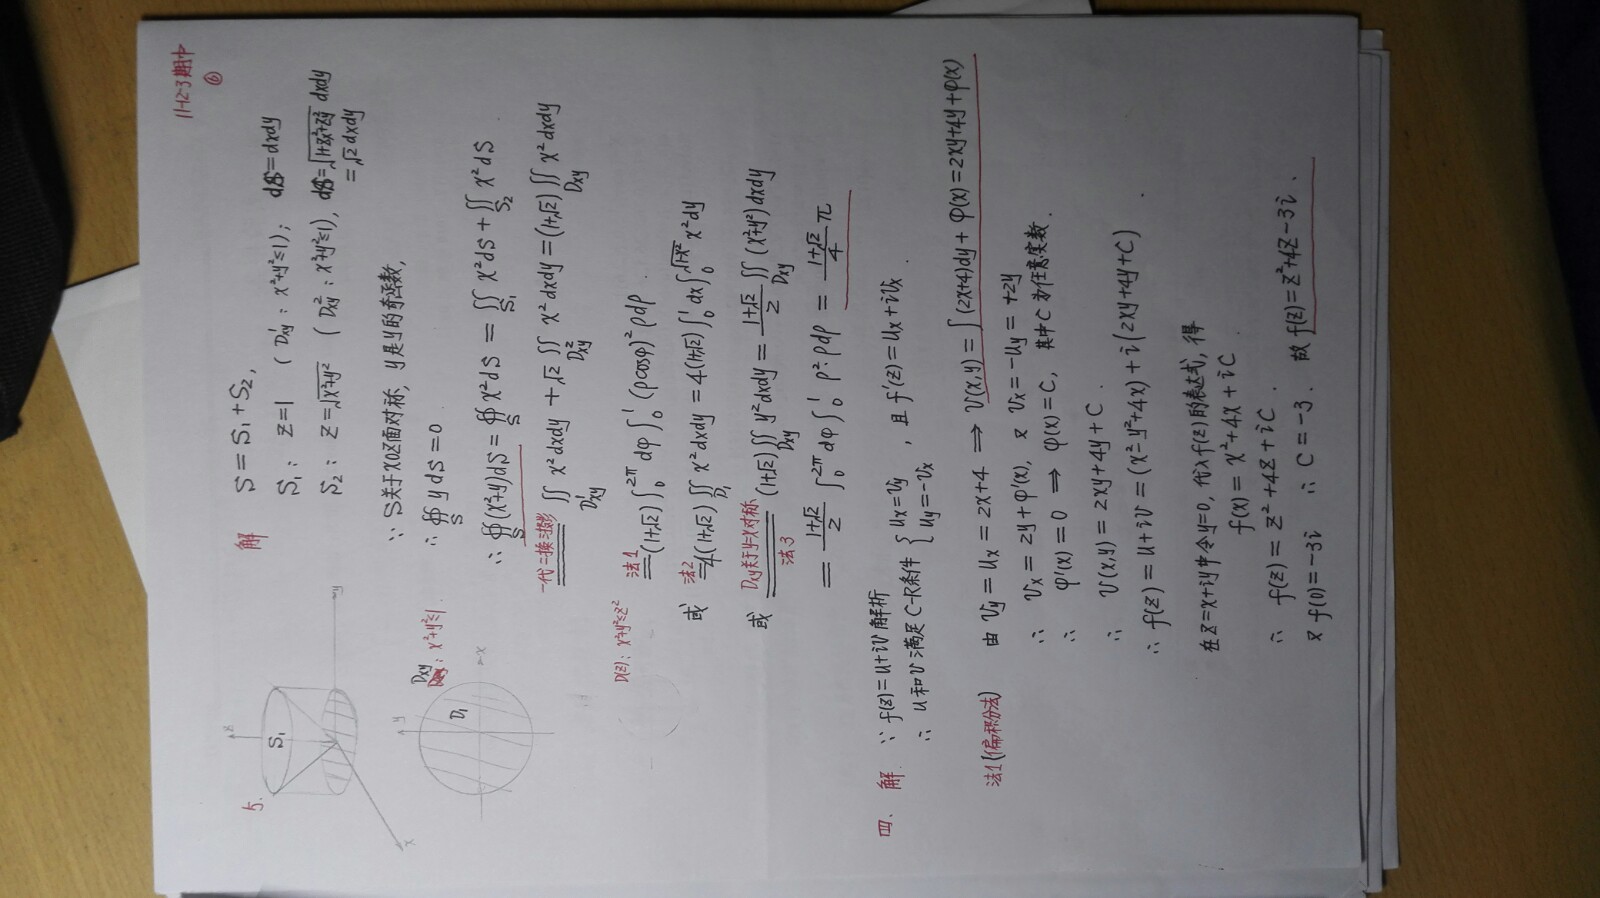 11-12-3期中
⑥
5.
解 S=S₁+S₂,
S₁: z=1 (D¹xy: x²+y²≤1); dS=dxdy
S₂: z=√(x²+y²) (D²xy: x²+y²≤1), dS=√(1+Zx²+Zy²) dxdy
=√2 dxdy
z
S₁
y
x
∵ S关于xOz面对称, y是y的奇函数,
∴ ∯_S y dS=0
∴ ∯_S (x²+y)dS = ∯_S x²dS = ∬_S₁ x²dS + ∬_S₂ x²dS
一代二换三投影 ∬_D¹xy x²dxdy + √2 ∬_D²xy x²dxdy = (1+√2) ∬_Dxy x²dxdy
Dxy: x²+y²≤1
y
D₁
x
D(z): x²+y²≤z²
法1 (1+√2) ∫₀^2π dφ ∫₀¹ (ρcosφ)² ρdρ.
或 法2 4(1+√2) ∬_D₁ x²dxdy = 4(1+√2) ∫₀¹ dx ∫₀^√(1-x²) x²dy
或 Dxy关于y=x对称 (1+√2) ∬_Dxy y²dxdy = (1+√2)/2 ∬_Dxy (x²+y²)dxdy
法3
= (1+√2)/2 ∫₀^2π dφ ∫₀¹ ρ²·ρdρ = (1+√2)/4 π
四、解. ∵ f(z)=u+iv 解析
∴ u和v满足C-R条件 { ux=vy uy=-vx , 且 f′(z)=ux+ivx.
法1(偏积分法) 由 vy=ux=2x+4 ⇒ v(x,y)=∫(2x+4)dy+φ(x)=2xy+4y+φ(x)
∴ vx=2y+φ′(x), 又 vx=-uy=+2y
∴ φ′(x)=0 ⇒ φ(x)=C, 其中C为任意实数.
∴ v(x,y)=2xy+4y+C.
∴ f(z)=u+iv=(x²-y²+4x)+i(2xy+4y+C).
在z=x+iy中令y=0, 代入f(z)的表达式, 得
f(x)=x²+4x+iC.
∴ f(z)=z²+4z+iC.
又 f(0)=-3i ∴ C=-3. 故 f(z)=z²+4z-3i.